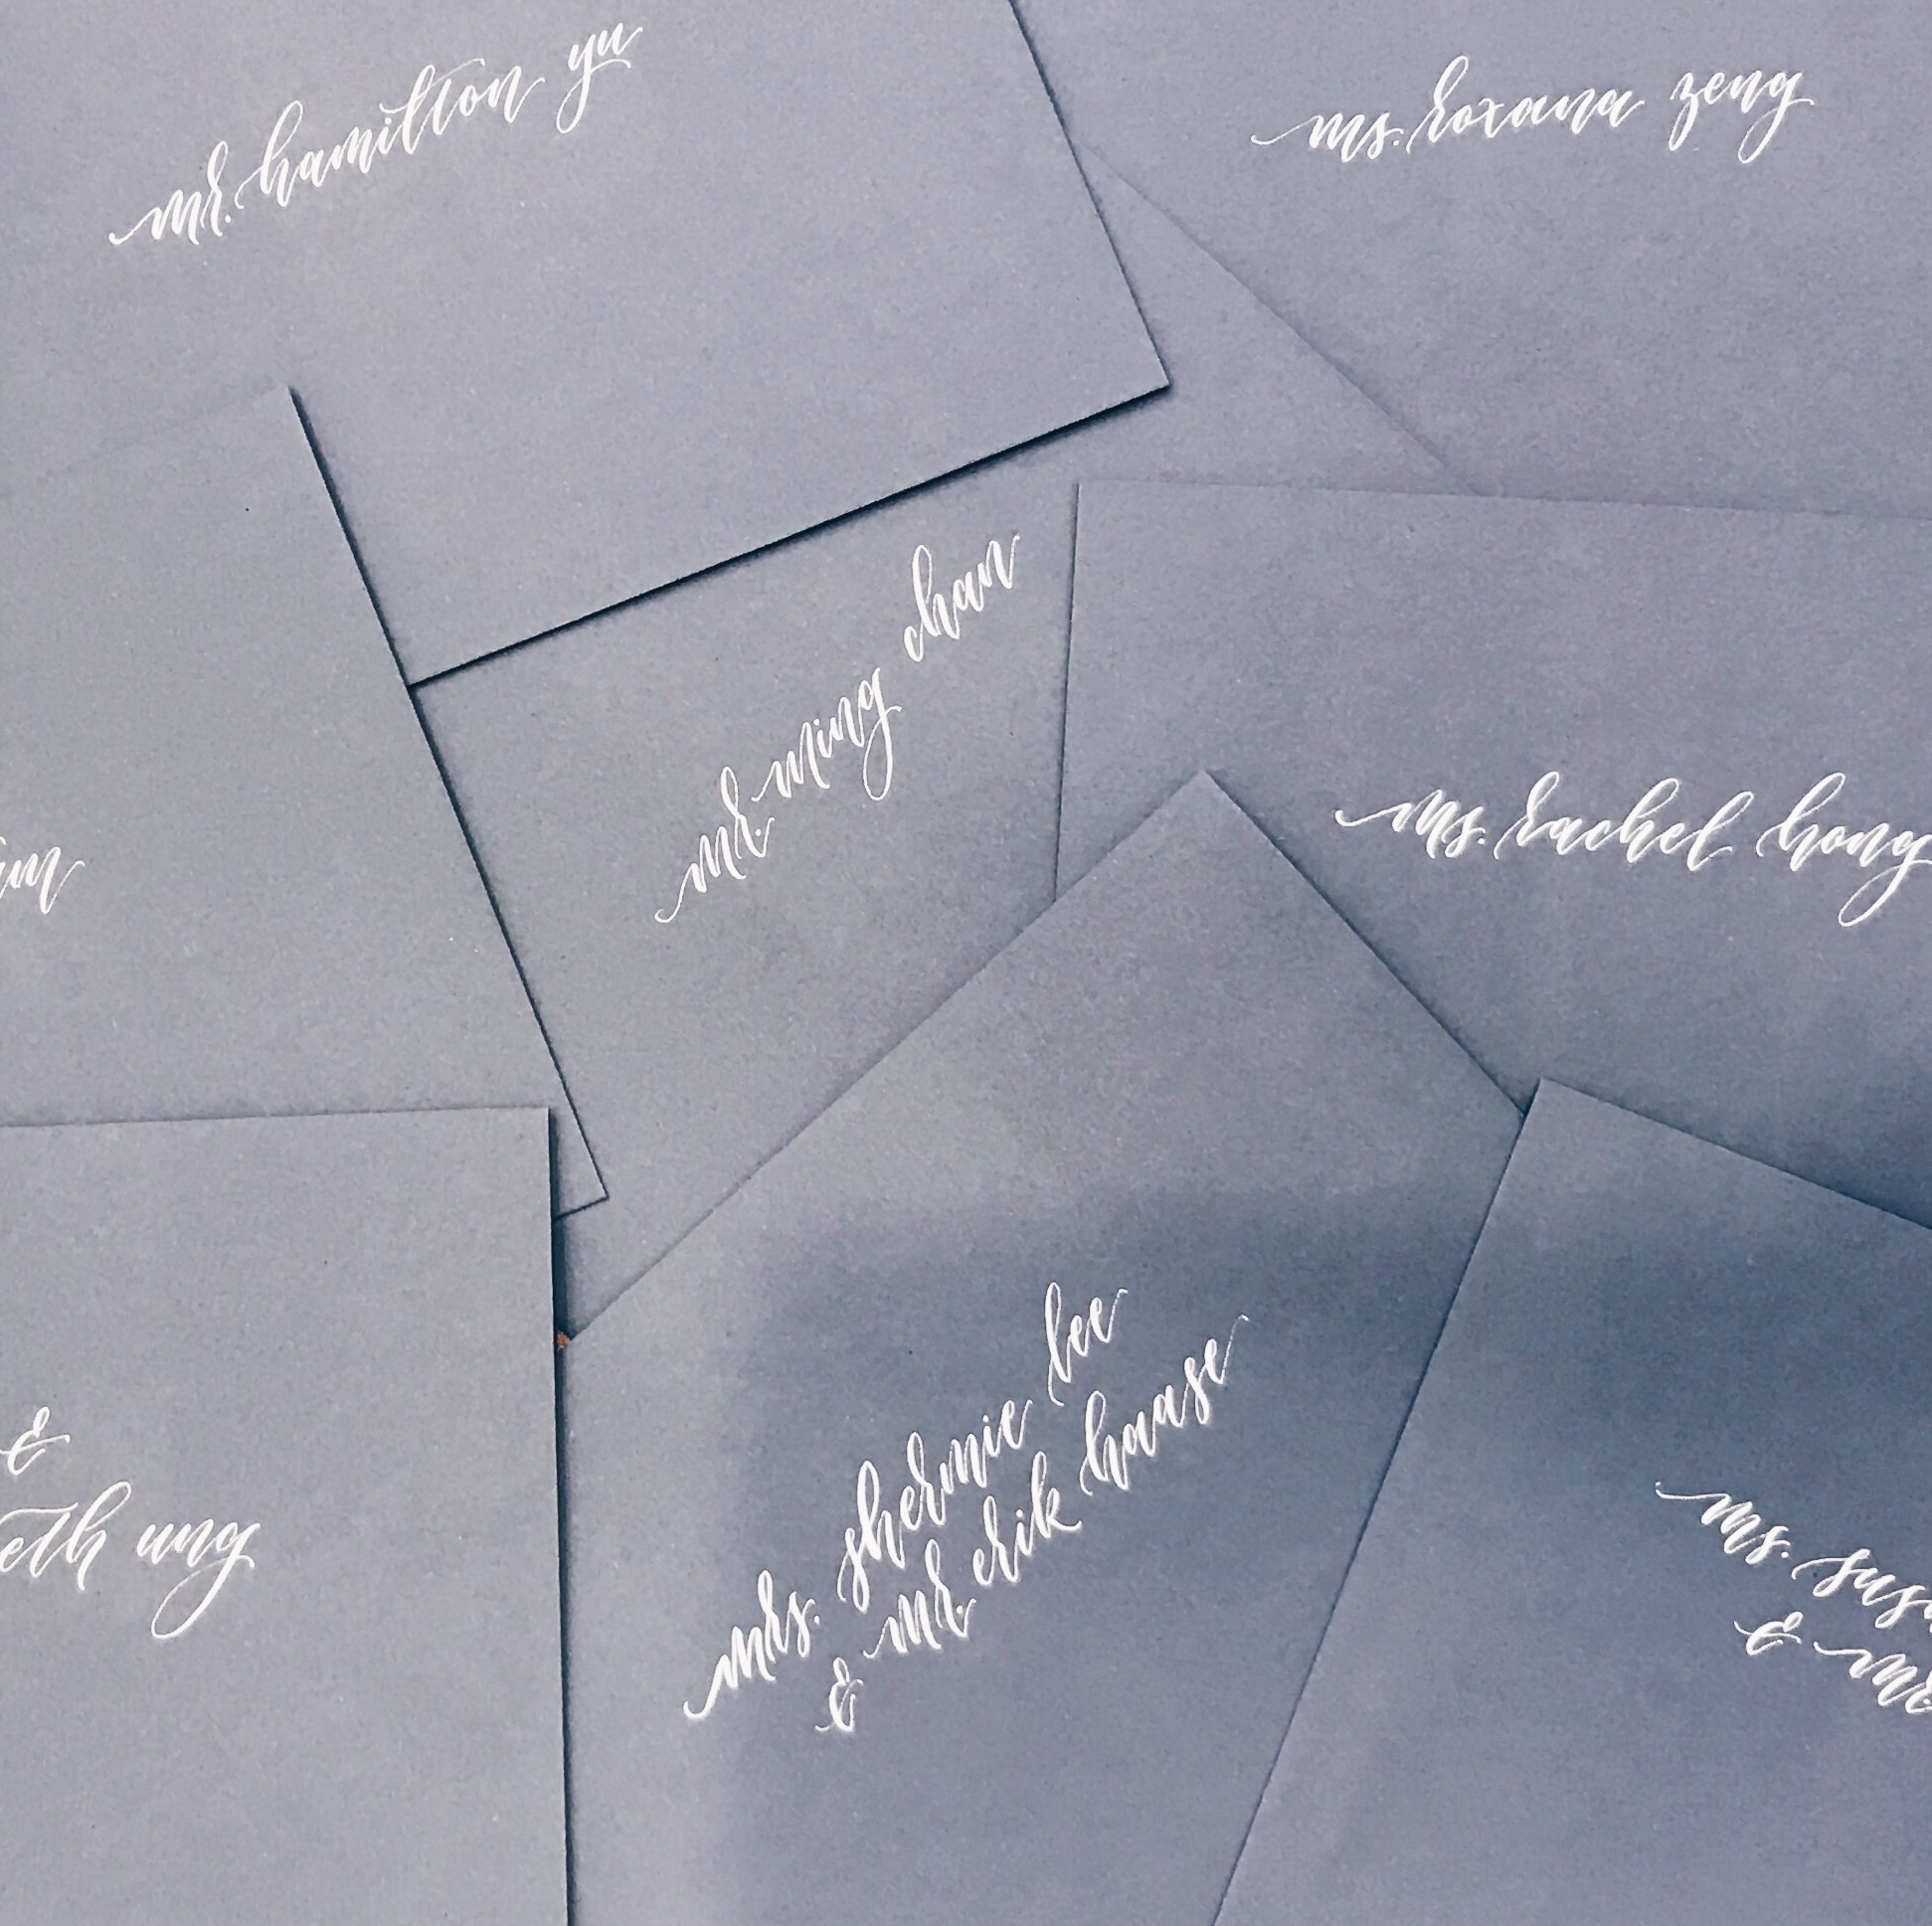 mr. hamilton yu
ms. roxana zeng
mr. ming chan
ms. rachel hong
&
ung
mrs. shermie lee
& mr. erik haase
ms.
& mr.